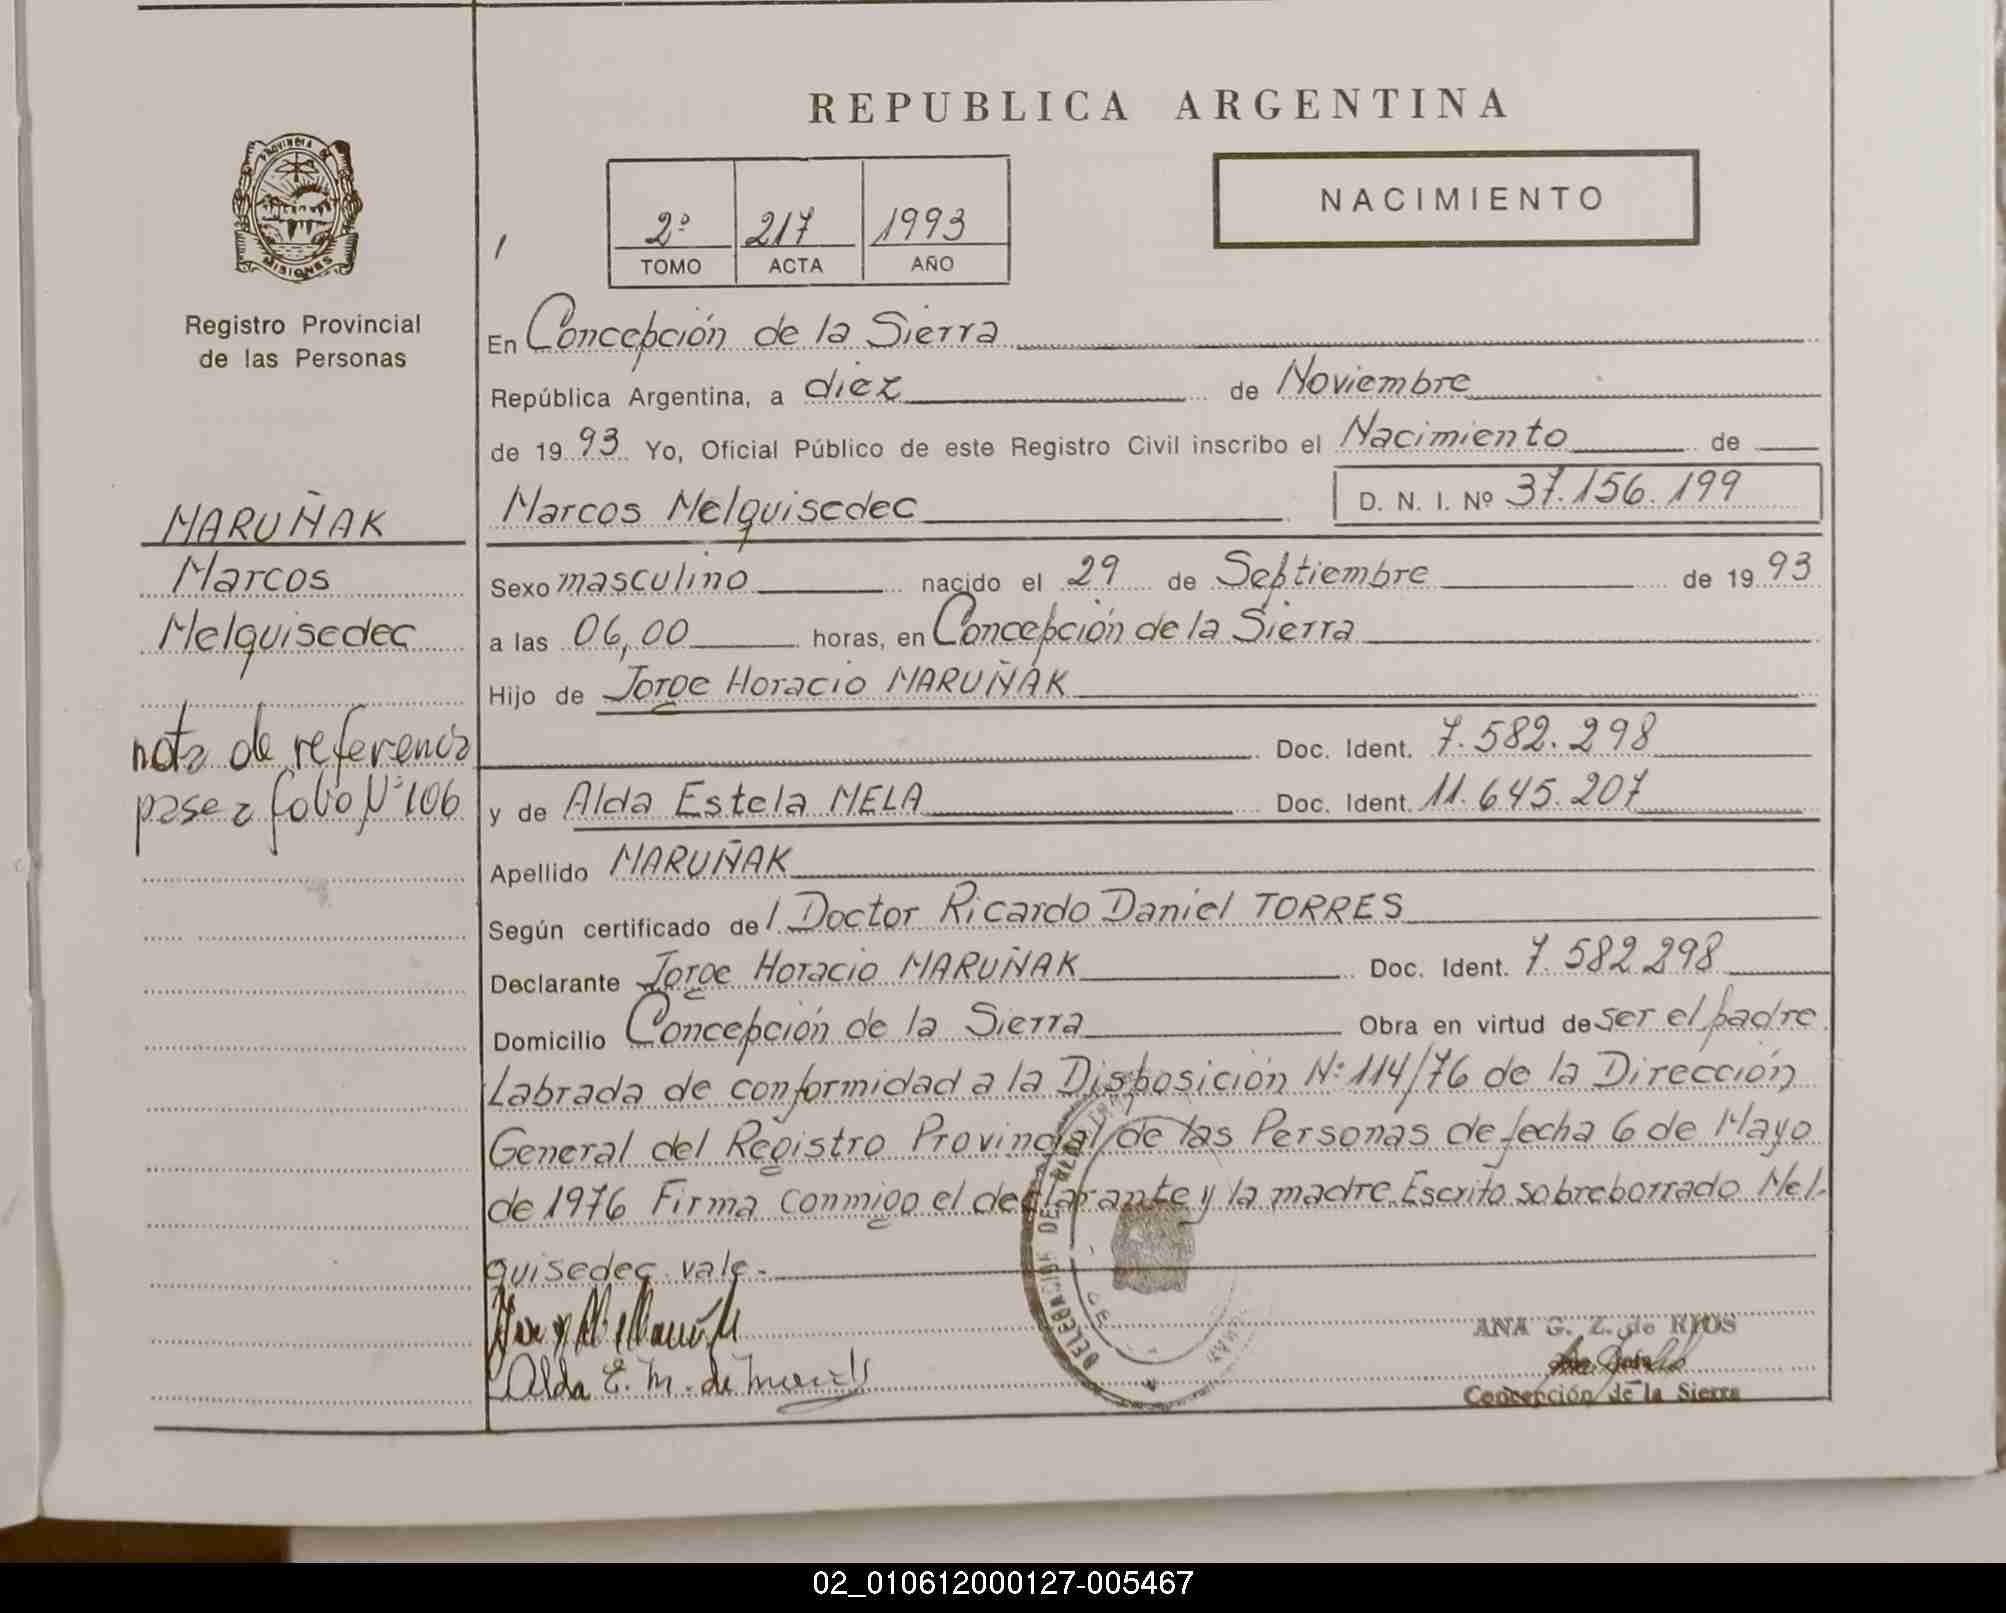 REPUBLICA ARGENTINA
PROVINCIA DE
MISIONES
Registro Provincial
de las Personas
2º 217 1993
TOMO ACTA AÑO
NACIMIENTO
En Concepción de la Sierra
República Argentina, a diez de Noviembre
de 1993 Yo, Oficial Público de este Registro Civil inscribo el Nacimiento de
Marcos Melquisedec D. N. I. Nº 37.156.199
MARUÑAK
Marcos
Melquisedec
nota de referencia
pase a folio Nº 106
Sexo masculino nacido el 29 de Septiembre de 1993
a las 06,00 horas, en Concepción de la Sierra
Hijo de Jorge Horacio MARUÑAK
Doc. Ident. 7.582.298
y de Alda Estela MELA Doc. Ident. 11.645.207
Apellido MARUÑAK
Según certificado del Doctor Ricardo Daniel TORRES
Declarante Jorge Horacio MARUÑAK Doc. Ident. 7.582.298
Domicilio Concepción de la Sierra Obra en virtud de ser el padre
Labrada de conformidad a la Disposición Nº 114/76 de la Dirección
General del Registro Provincial de las Personas de fecha 6 de Mayo
de 1976 Firma conmigo el declarante y la madre. Escrito sobreborrado Mel-
quisedec. vale.-
Alda E. M. de
ANA G. Z. de RIOS
Concepción de la Sierra
02_010612000127-005467